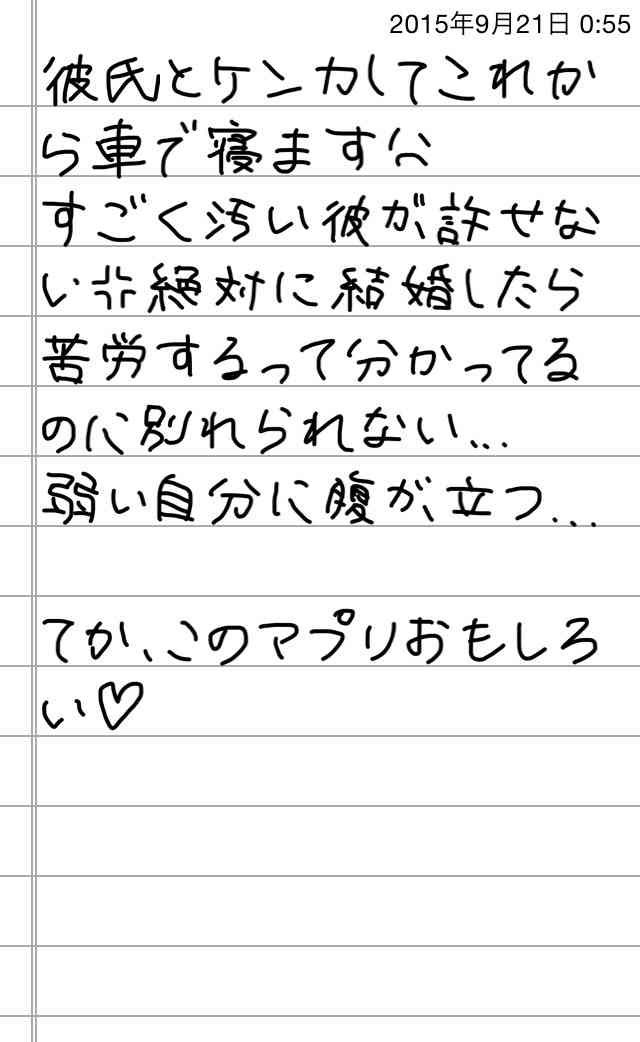 2015年9月21日 0:55
彼氏とケンカしてこれか
ら車で寝ます^^
すごく汚い彼が許せな
い💢絶対に結婚したら
苦労するって分かってる
のに別れられない...
弱い自分に腹が立つ...
てか、このアプリおもしろ
い♡